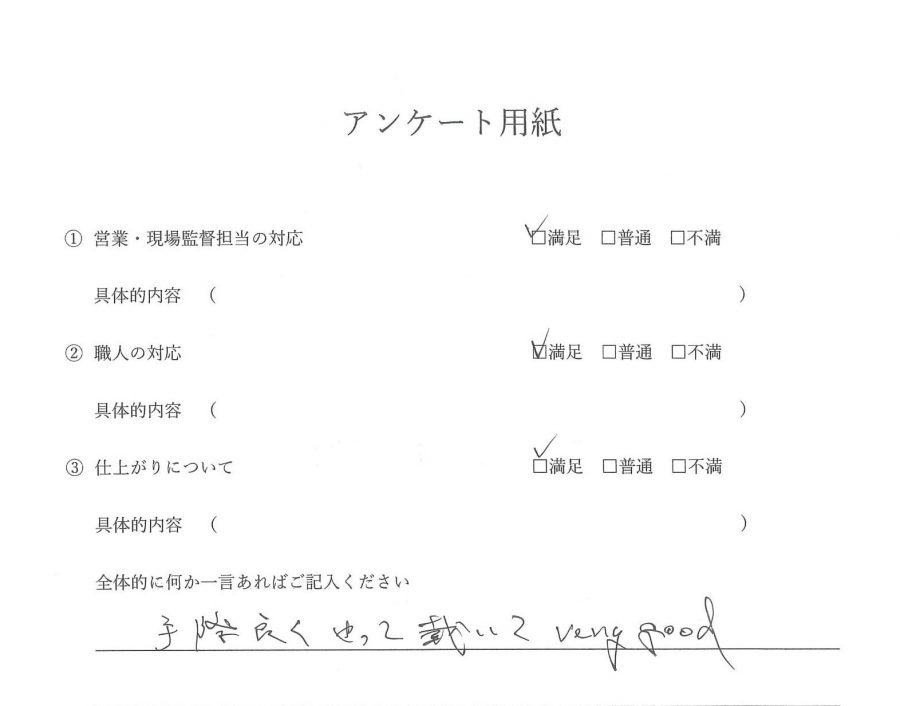 アンケート用紙
① 営業・現場監督担当の対応 ☑満足 □普通 □不満
具体的内容 ( )
② 職人の対応 ☑満足 □普通 □不満
具体的内容 ( )
③ 仕上がりについて ☑満足 □普通 □不満
具体的内容 ( )
全体的に何か一言あればご記入ください
手際良くやって戴いて very good